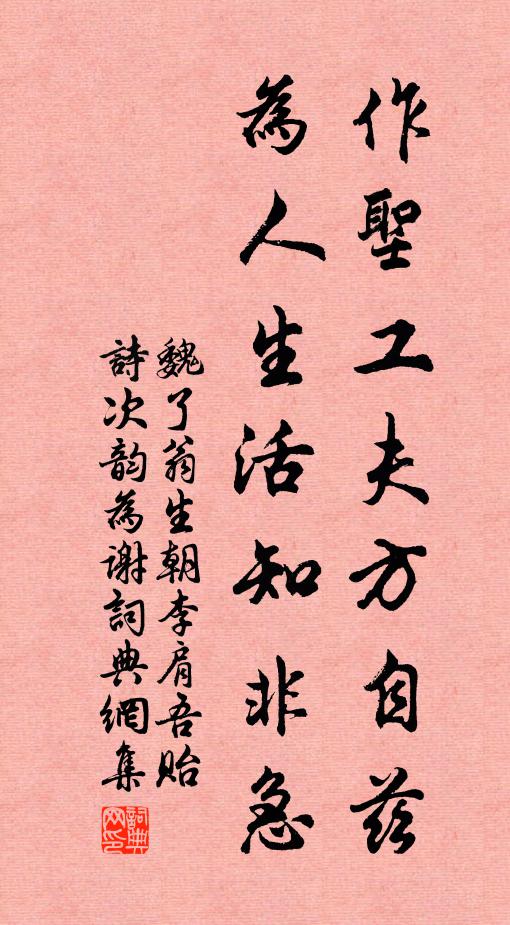 作聖工夫方自茲
為人生活知非急
魏了翁生朝李肩吾貽
詩次韵為谢詞典網集
詞典网印